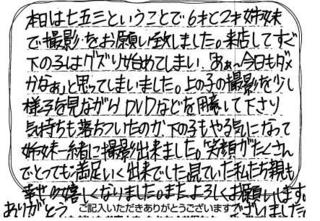 本日は七五三ということで6才と2才姉妹
で撮影をお願い致しました。来店してすぐ
下の子はグズり始めてしまい、あぁ、今日もダメ
かなぁ、と思ってしまいました。上の子の撮影を少し
様子を見ながらDVDなどを用意して下さり
気持ちも落ちついたのか下の子もやる気になって
姉妹一緒に撮影出来ました。笑顔がたくさん
でとっても満足いく出来でした。見ていた私たち親も
幸せで嬉しくなりました。またよろしくお願いします。
ありがとうございました
ご記入いただきありがとうございます